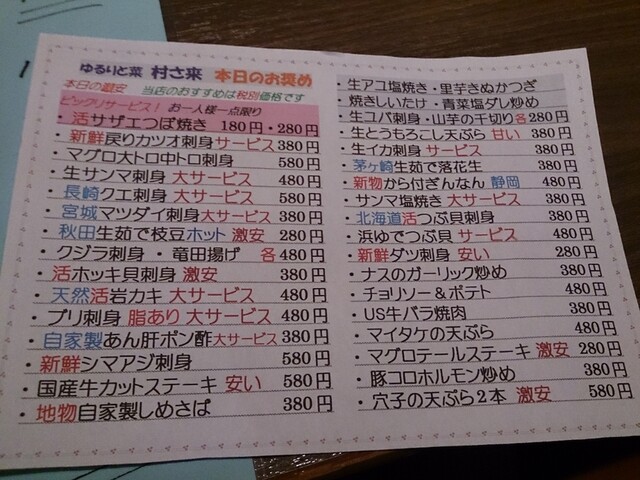 ゆるりと菜 村さ来 本日のお奨め
本日の激安 当店のおすすめは税別価格です
ビックリサービス! お一人様一点限り
・活サザエつぼ焼き 180円・280円
・新鮮戻りカツオ刺身サービス380円
・マグロ大トロ中トロ刺身 580円
・生サンマ刺身 大サービス 480円
・長崎クエ刺身 大サービス 580円
・宮城マツダイ刺身大サービス380円
・秋田生茹で枝豆ホット 激安 280円
・クジラ刺身・竜田揚げ 各480円
・活ホッキ貝刺身 激安 380円
・天然活岩カキ 大サービス 480円
・ブリ刺身 脂あり 大サービス 480円
・自家製あん肝ポン酢大サービス380円
・新鮮シマアジ刺身 580円
・国産牛カットステーキ 安い 580円
・地物自家製しめさば 380円
・生アユ塩焼き・里芋きぬかつぎ
・焼きしいたけ・青菜塩ダレ炒め
・生コバ刺身・山芋の千切り各280円
・生とうもろこし天ぷら 甘い 380円
・生イカ刺身 サービス 380円
・茅ヶ崎生茹で落花生 380円
・新物から付ぎんなん 静岡 480円
・サンマ塩焼き 大サービス 380円
・北海道活つぶ貝刺身 380円
・浜ゆでつぶ貝 サービス 480円
・新鮮ダツ刺身 安い 280円
・ナスのガーリック炒め 380円
・チョリソー&ポテト 480円
・US牛バラ焼肉 380円
・マイタケの天ぷら 480円
・マグロテールステーキ 激安 280円
・豚コロホルモン炒め 380円
・穴子の天ぷら2本 激安 580円